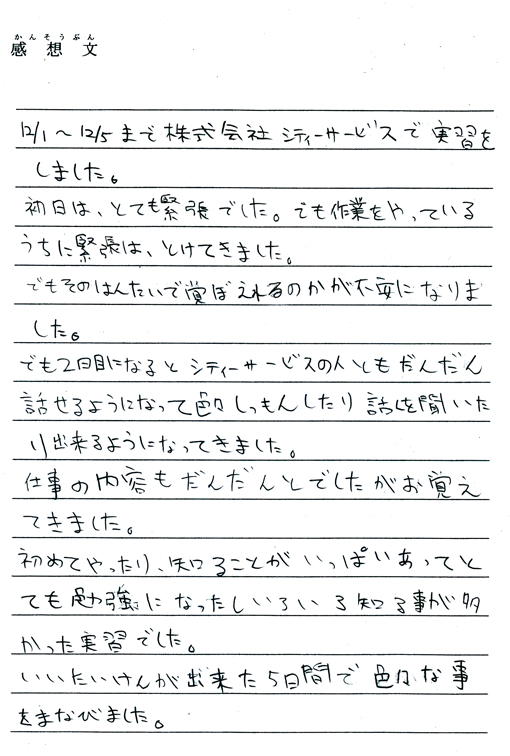 かんそうぶん
感想文
12/1～12/5まで株式会社シティーサービスで実習を
しました。
初日は、とても緊張でした。でも作業をやっている
うちに緊張は、とけてきました。
でもそのはんたいで覚ぼえれるのかが不安になりま
した。
でも2日目になるとシティーサービスの人ともだんだん
話せるようになって色々しつもんしたり話しを聞いた
り出来るようになってきました。
仕事の内容もだんだんとでしたがお覚え
てきました。
初めてやったり、知ることがいっぱいあってと
ても勉強になったしいろいろ知る事が多
かった実習でした。
いいたいけんが出来た5日間で色々な事
をまなびました。